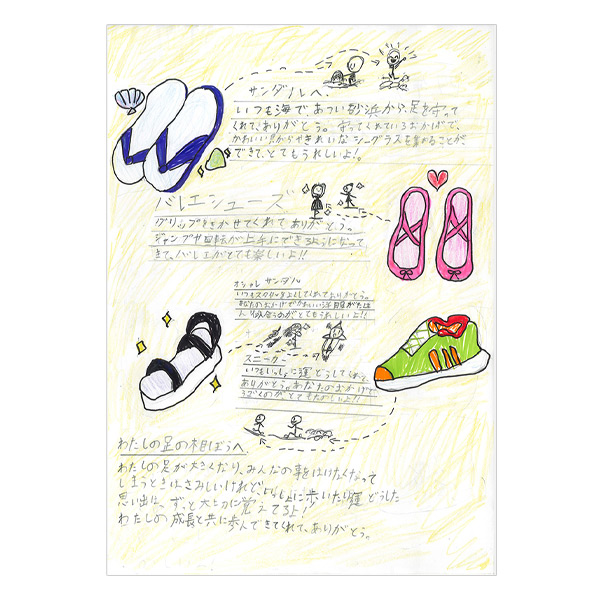 サンダルへ
いつも海で、あつい砂浜から、足を守って
くれて、ありがとう。守ってくれているおかげで、
かわいい貝がらやきれいなシーグラスを集めることが、
できて、とてもうれしいよ!。
バレエシューズ
グリップをきかせてくれてありがとう。
ジャンプや回転が上手にできるようになって
きて、バレエがとても楽しいよ!!
オシャレサンダル
いつもスタイルを上くしてくれてありがとう。
あなたのおかげでかわいい洋服がたく
似合うのがとてもうれしいよ!!
スニーカー
いつもいっしょに運どうしてくれて、
ありがとう。あなたのおかげで
うごくのがとてもたのしいよ!!
わたしの足の相ぼうへ
わたしの足が大きくなり、みんなの事をはけなくなって
しまうときはさみしいけれど、いっしょに歩いたり運どうした
思い出は、ずっと大切に覚えてるよ!
わたしの成長と共に歩んできてくれて、ありがとう。